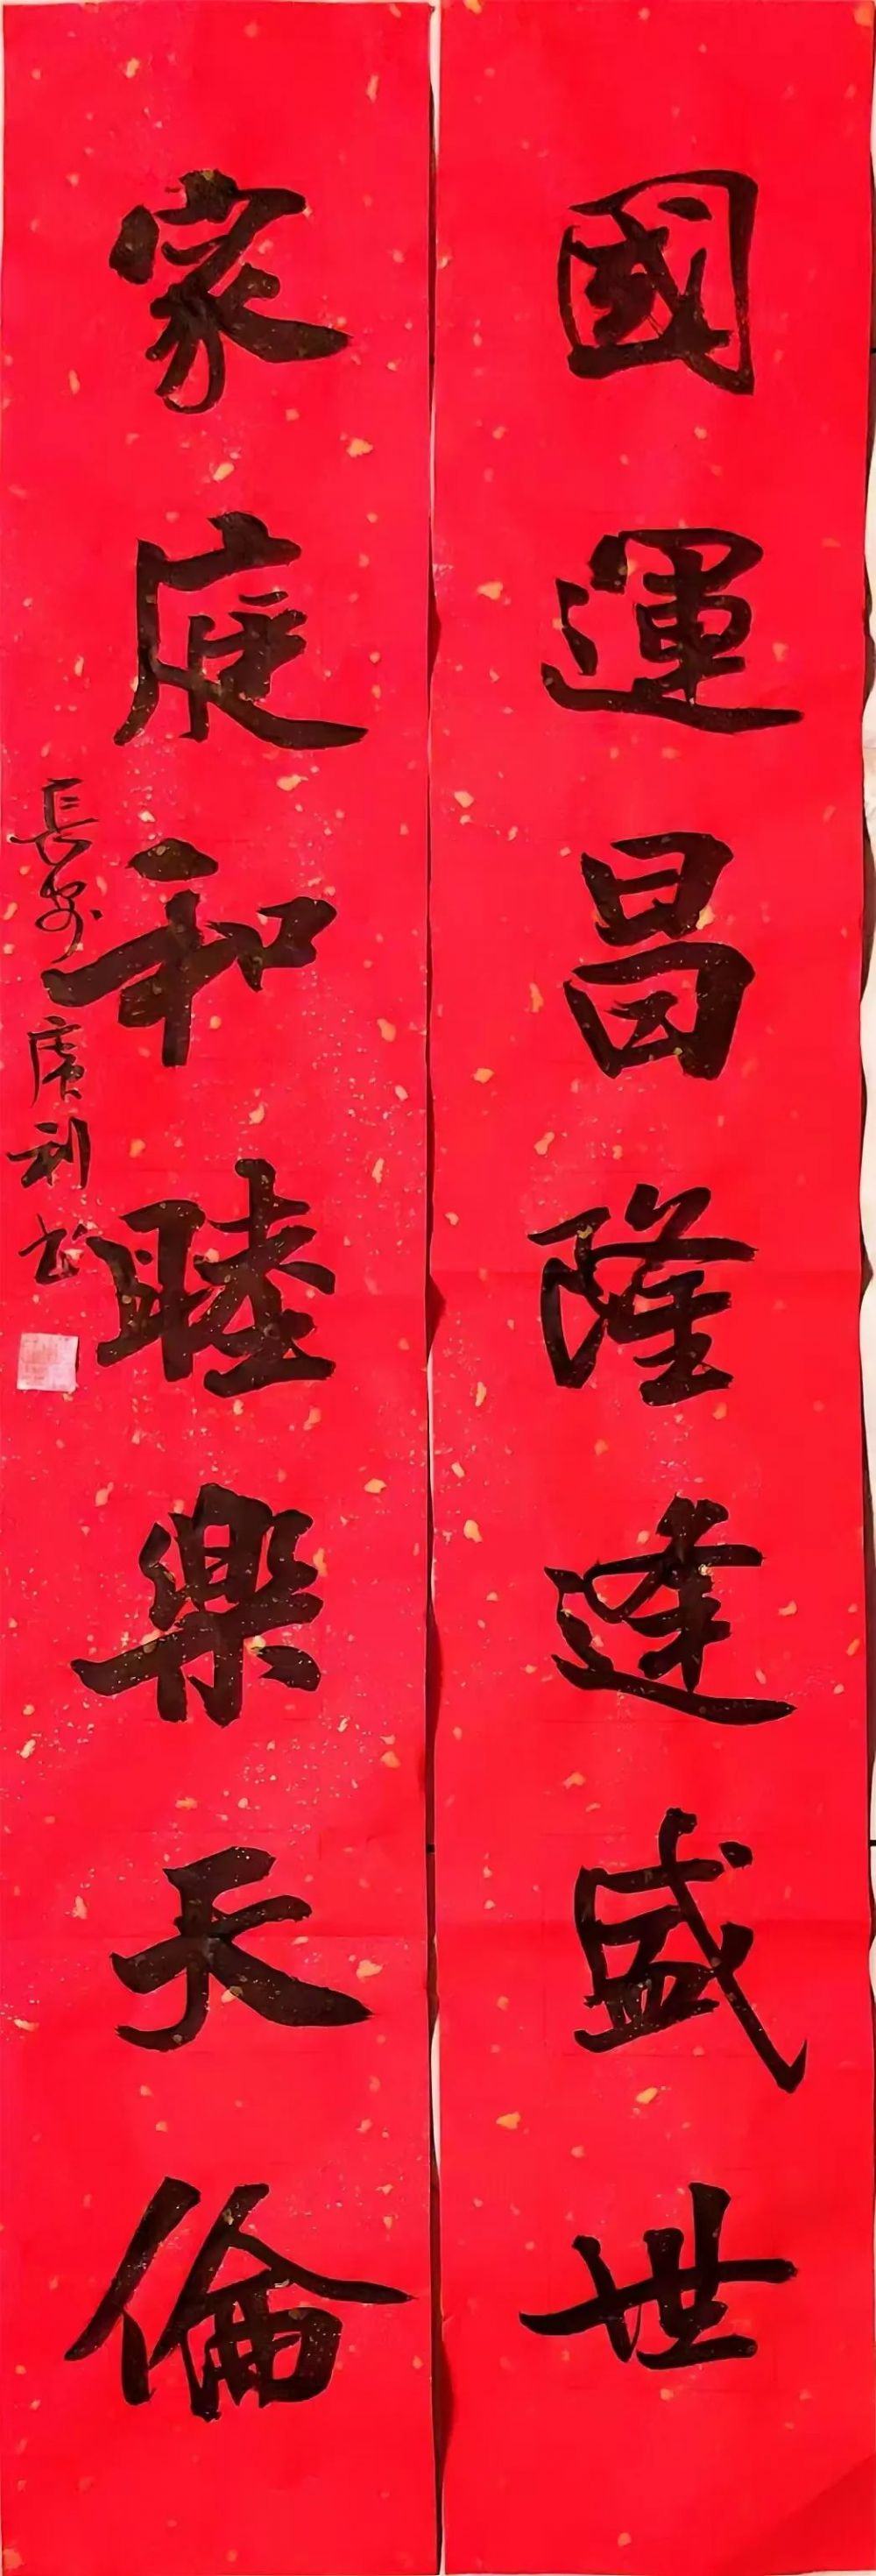 國運昌隆逢盛世
家庭和睦樂天倫
長安 利书